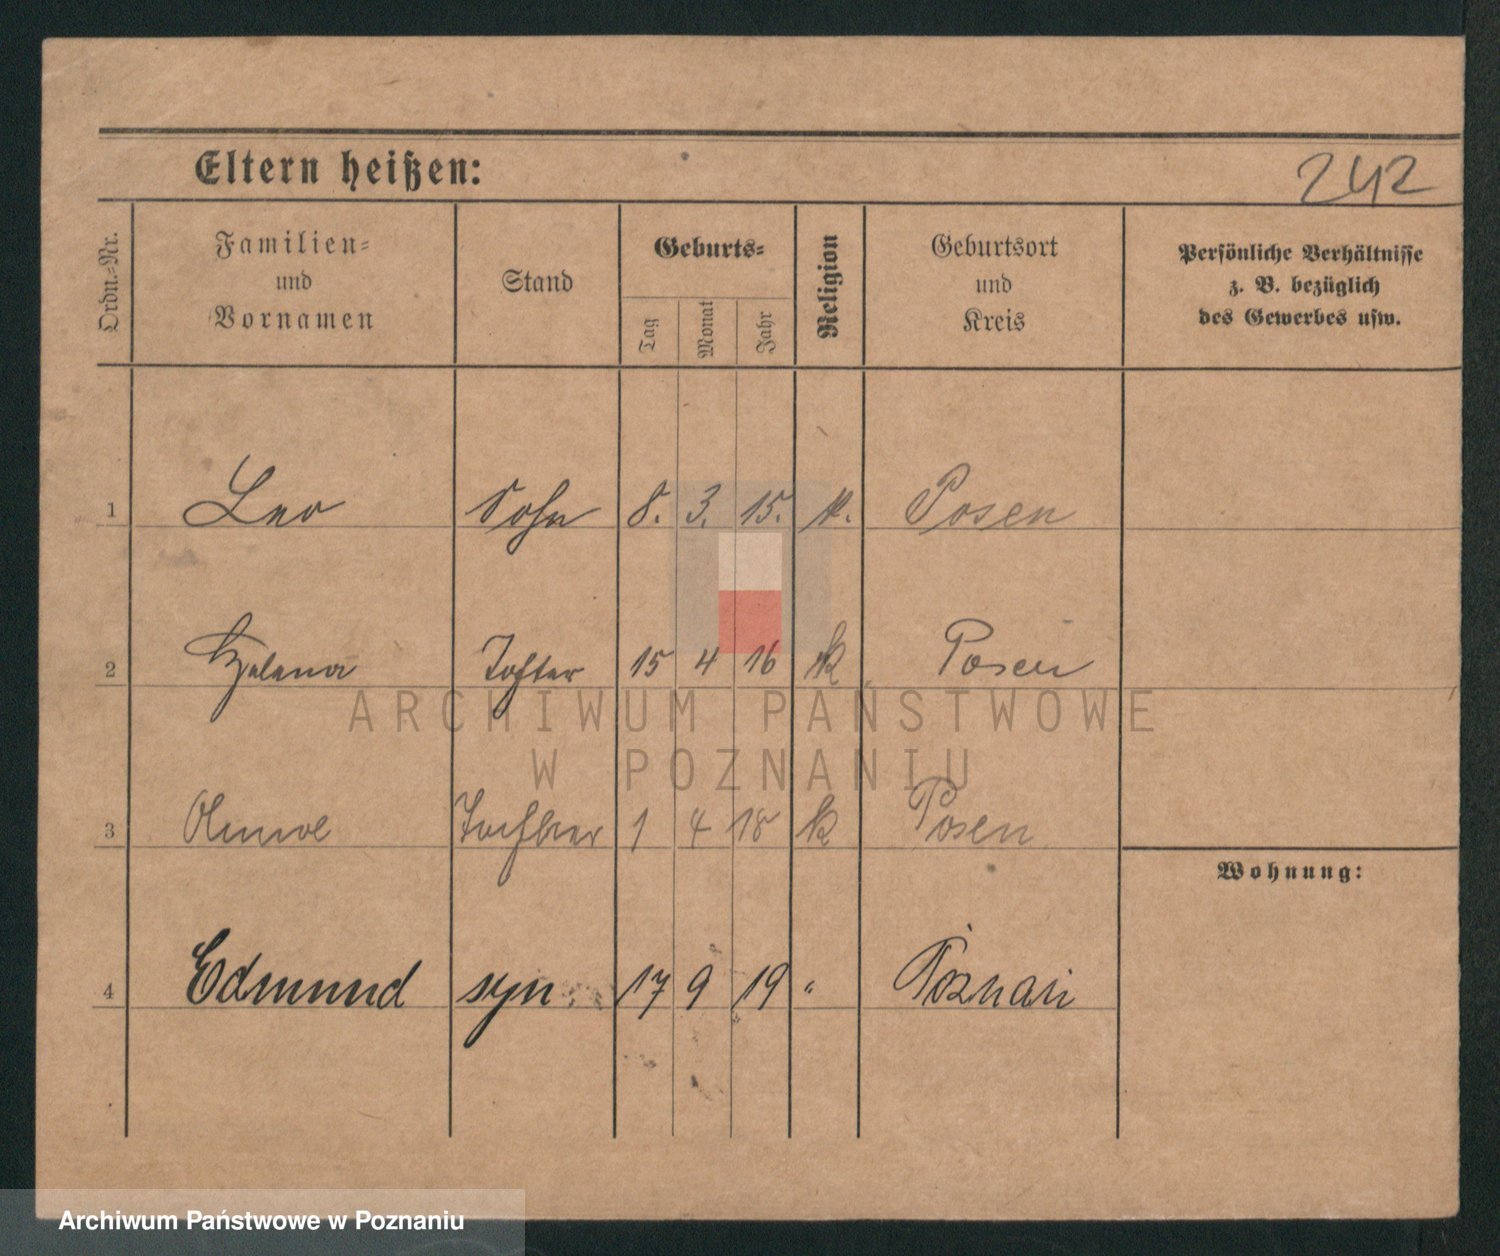 Eltern heißen:
242
Ordn.-Nr.
Familien-
und
Vornamen
Stand
Geburts-
Tag
Monat
Jahr
Religion
Geburtsort
und
Kreis
Persönliche Verhältnisse
z. B. bezüglich
des Gewerbes usw.
1 Leo Sohn 8. 3. 15. k. Posen
2 Helena Tochter 15 4 16 k Posen
ARCHIWUM PAŃSTWOWE
W POZNANIU
3 Tochter 1 4 18 k Posen
Wohnung:
4 Edmund syn 17 9 19 " Poznań
Archiwum Państwowe w Poznaniu